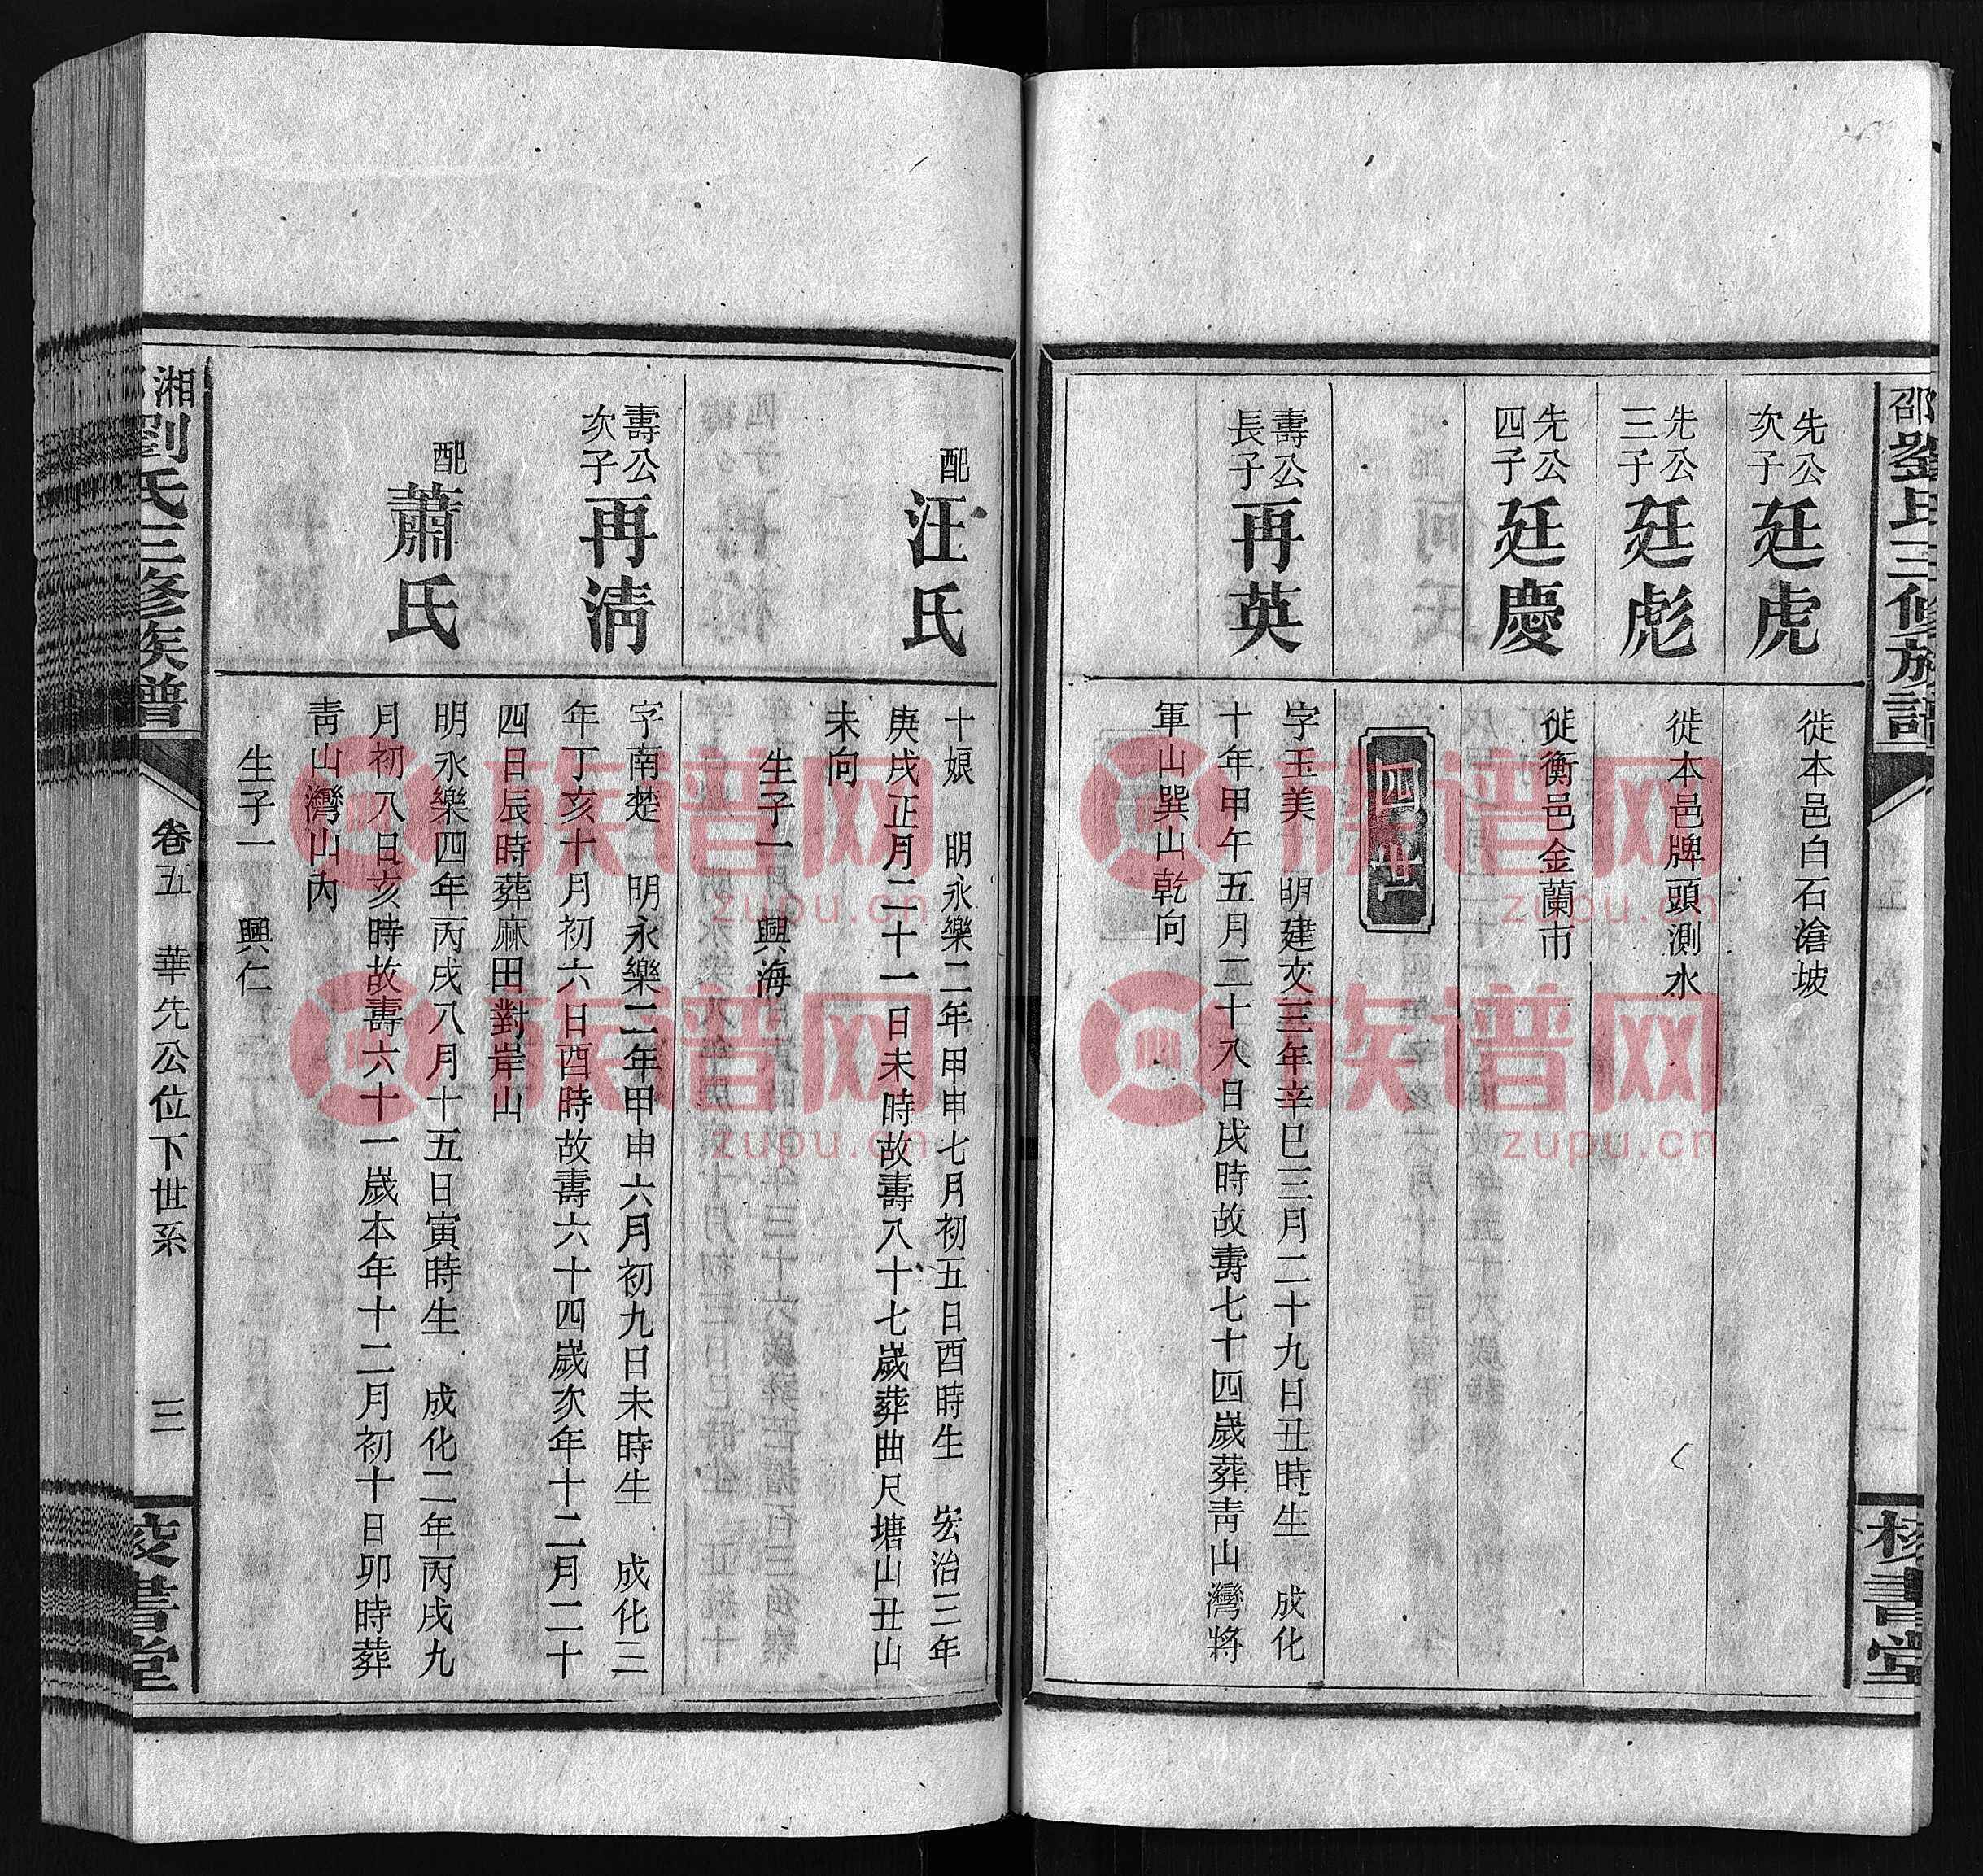 邵劉氏三修族譜
校書堂
先公
次子
廷虎
徙本邑白石滄坡
先公
三子
廷彪
徙本邑牌頭測水
先公
四子
廷慶
徙衡邑金蘭市
四世
壽公
長子
再英
字玉美 明建文三年辛巳三月二十九日丑時生 成化
十年甲午五月二十八日戌時故壽七十四歲葬青山灣將
軍山巽山乾向
配
汪氏
十娘 明永樂二年甲申七月初五日酉時生 宏治三年
庚戌正月二十一日未時故壽八十七歲葬曲尺塘山丑山
未向
生子一 興海
壽公
次子
再清
字南楚 明永樂二年甲申六月初九日未時生 成化三
年丁亥十月初六日酉時故壽六十四歲次年十二月二十
四日辰時葬麻田對岸山
配
蕭氏
明永樂四年丙戌八月十五日寅時生 成化二年丙戌九
月初八日亥時故壽六十一歲本年十二月初十日卯時葬
靑山灣山內
生子一 興仁
湘劉氏三修族譜
卷五 華先公位下世系 三
校書堂
族谱网
zupu.cn
族谱网
zupu.cn
族谱网
zupu.cn
族谱网
zupu.cn